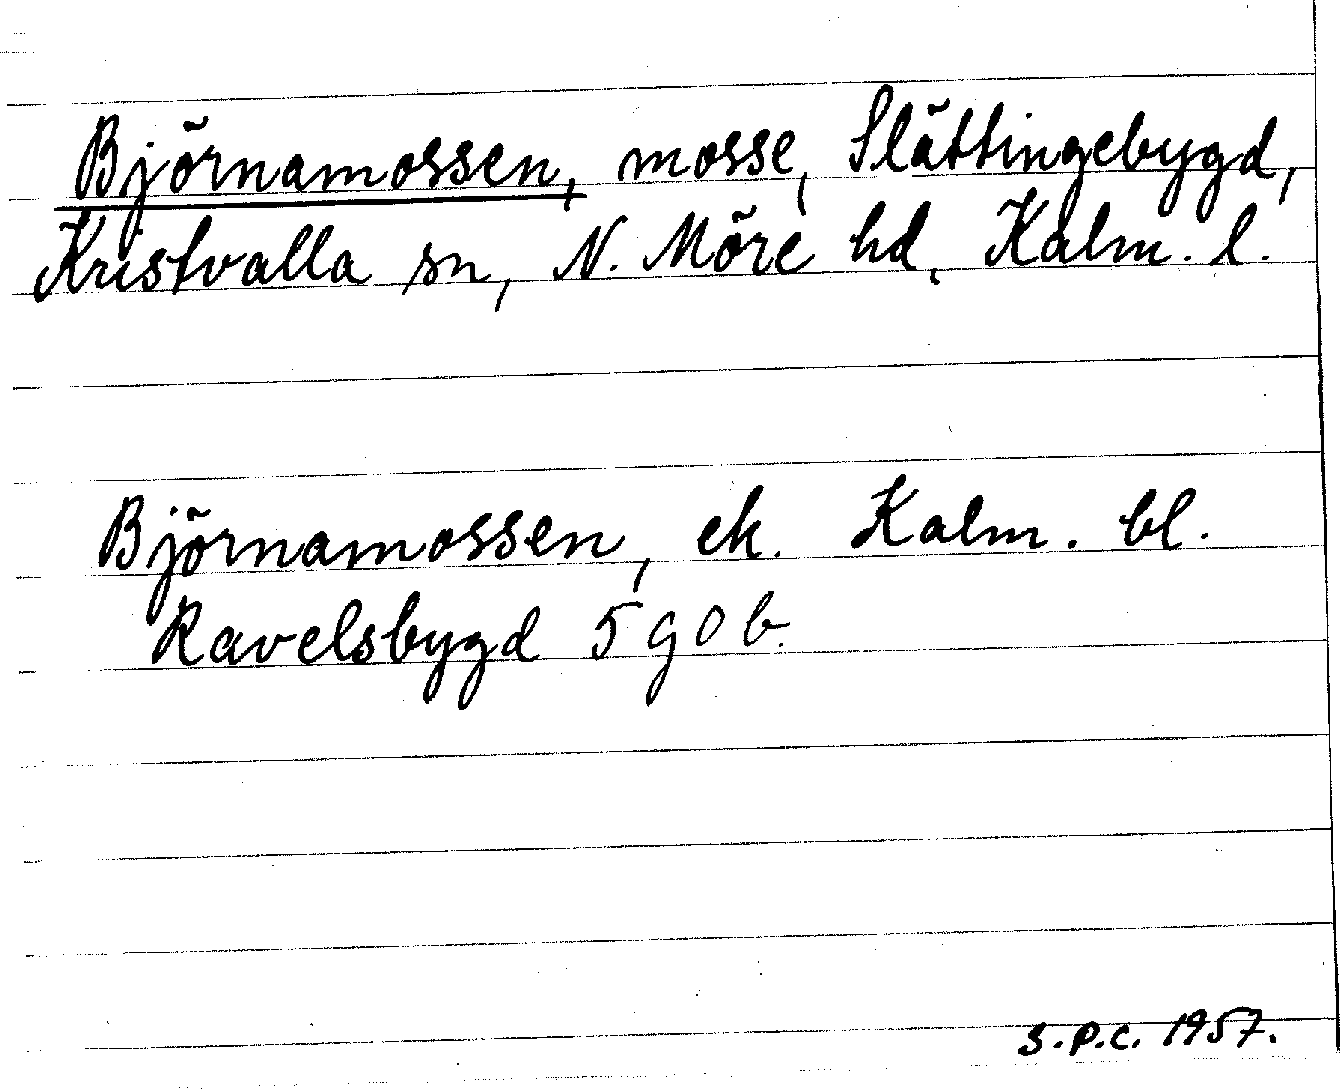 Björnamossen, mosse, Slättingebygd,
Kristvalla sn, N. Möre hd, Kalm. l.
Björnamossen, ek. Kalm. bl.
Ravelsbygd 5 9 0 b.
S.P.C. 1957.